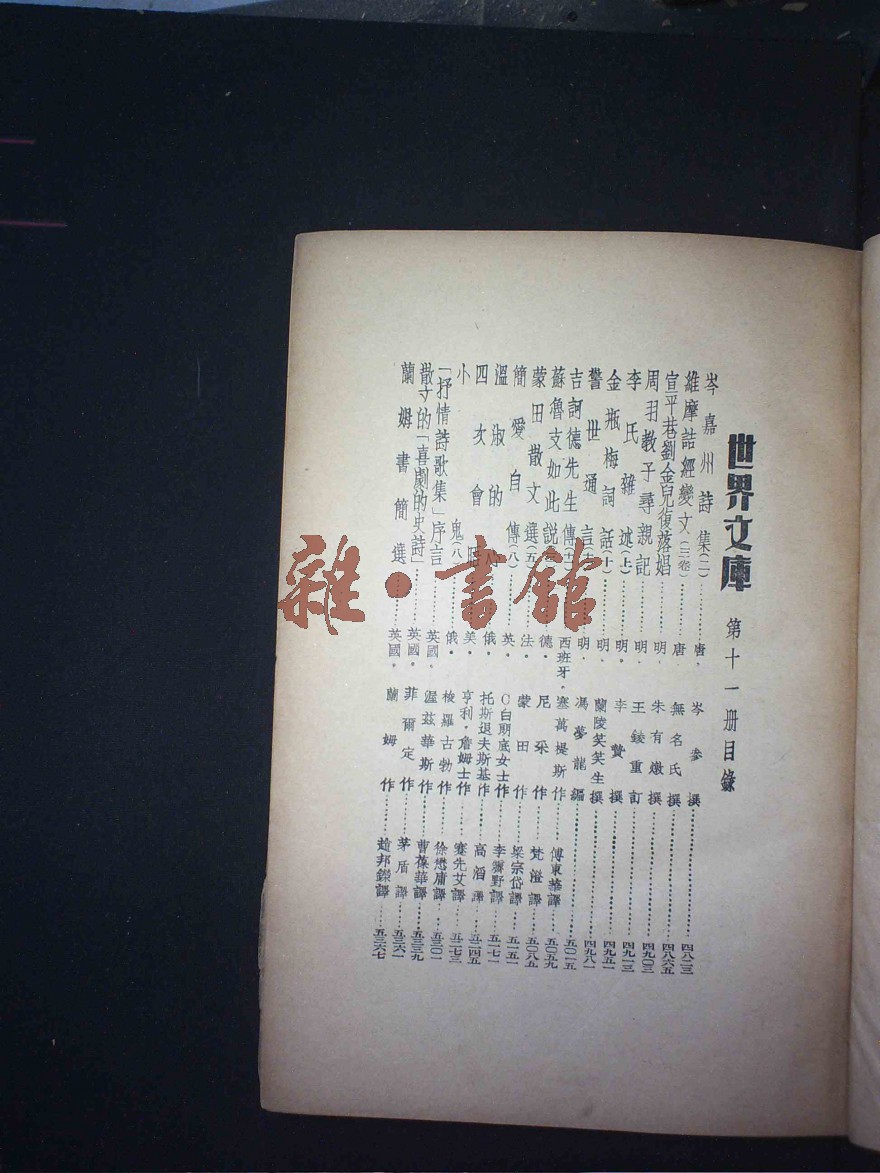 世界文庫 第十一册目錄
岑嘉州詩集(二)………唐·岑參撰………四八二三
維摩詰經變文(三卷)………唐·無名氏撰………四八六五
宣平巷劉金兒復落娼………明·朱有燉撰………四九〇三
周羽教子尋親記………明·王錂重訂………四九一三
李氏雜述(上)………明·李贄撰………四九五一
金瓶梅詞話(十)………明·蘭陵笑笑生撰………四九八一
警世通言………明·馮夢龍編………五〇一五
吉訶德先生傳………西班牙·塞萬提斯作………傅東華譯………五〇五九
蘇魯支如此說………德·尼采作………梵澄譯………五〇八五
蒙田散文選(五)………法·蒙田作………梁宗岱譯………五一五一
簡愛自傳(八)………英·C白朗底女士作………李霽野譯………五一七一
溫淑的………俄·托斯退夫斯基作………高滔譯………五二四五
四次會………美·亨利·詹姆士作………蹇先艾譯………五二七三
小鬼(八)………俄·梭羅古勃作………徐懋庸譯………五三〇一
「抒情詩歌集」序言………英國·渥兹華斯作………曹葆華譯………五三三九
散文的「喜劇的史詩」………英國·菲爾定作………茅盾譯………五三六一
蘭姆書簡選………英國·蘭姆作………趙邦鑅譯………五三六七
雜·書館